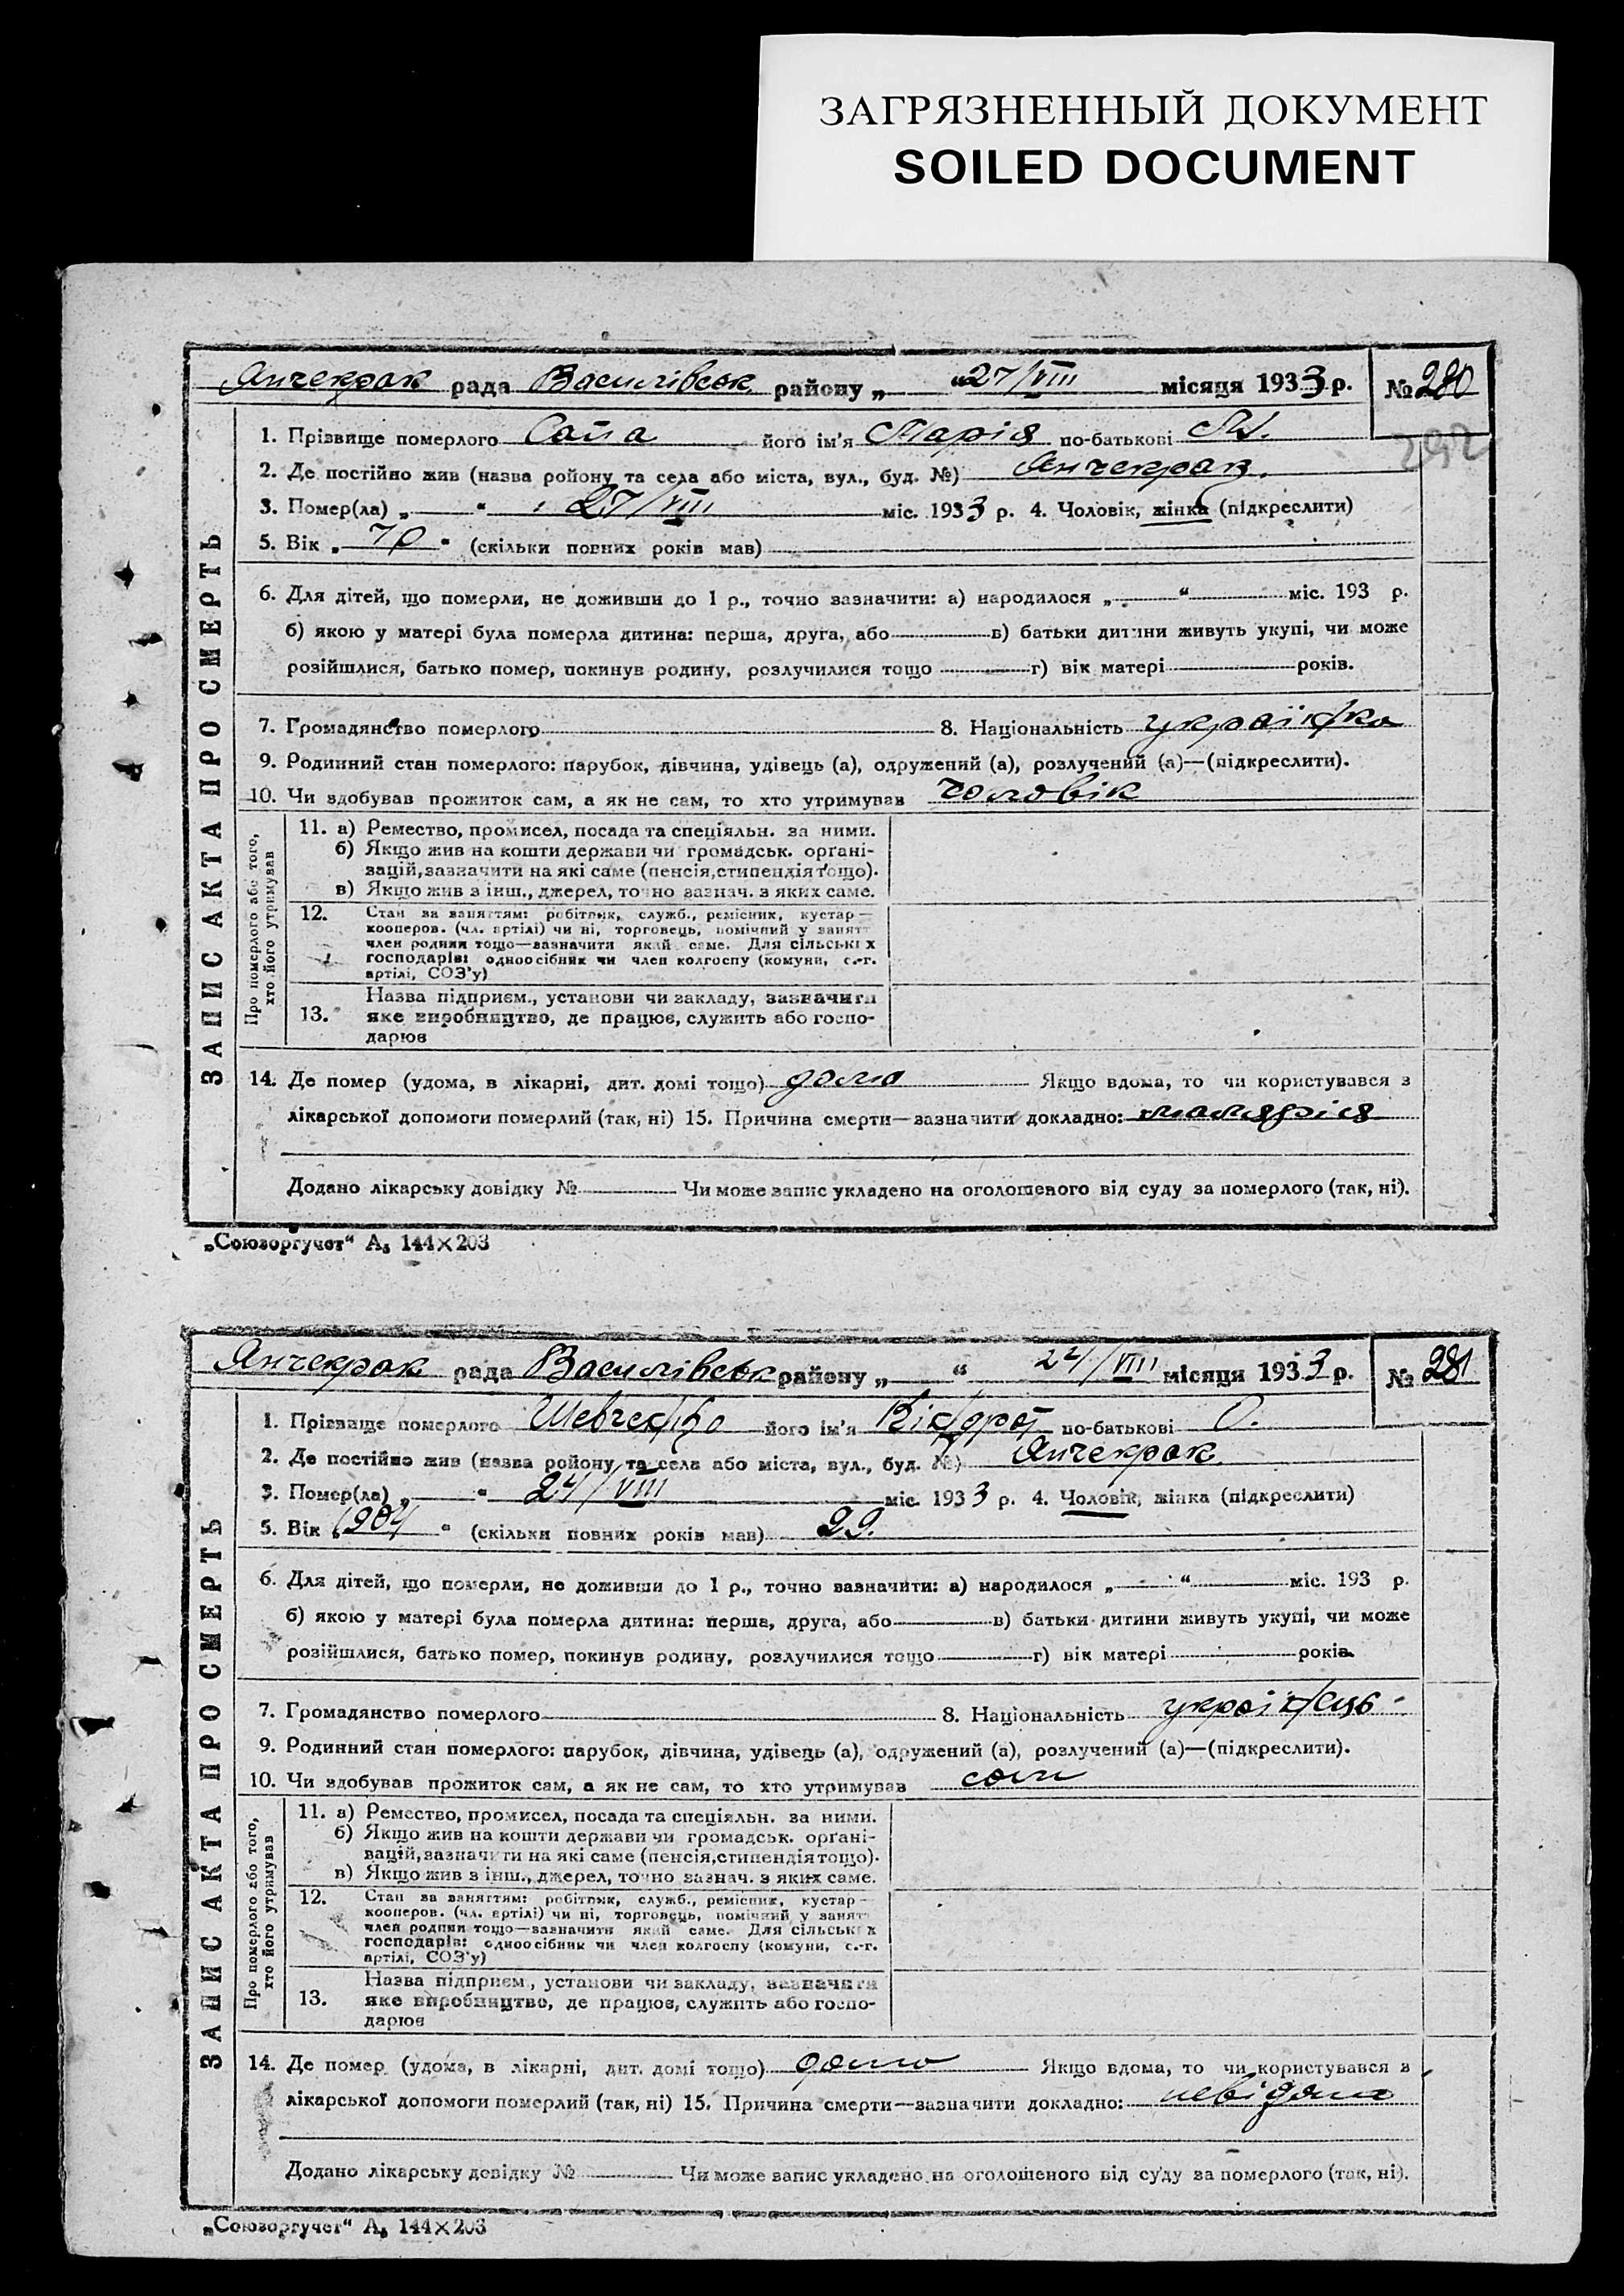 ЗАГРЯЗНЕННЫЙ ДОКУМЕНТ
SOILED DOCUMENT
Янчекрак рада Василівськ району „ “ 27/VIII місяця 1933 р. № 280
1. Прізвище померлого його ім'я Марія по-батькові
292
2. Де постійно жив (назва ройону та села або міста, вул., буд. №) Янчекрак.
3. Помер(ла) „ “ 27/VIII міс. 1933 р. 4. Чоловік, жінка (підкреслити)
5. Вік „ 70 “ (скільки повних років мав)
6. Для дітей, що померли, не доживши до 1 р., точно зазначити: а) народилося „ “ міс. 193 р.
б) якою у матері була померла дитина: перша, друга, або в) батьки дитини живуть укупі, чи може
розійшлися, батько помер, покинув родину, розлучилися тощо г) вік матері років.
7. Громадянство померлого 8. Національність українка
9. Родинний стан померлого: парубок, дівчина, удівець (а), одружений (а), розлучений (а)—(підкреслити).
10. Чи здобував прожиток сам, а як не сам, то хто утримував чоловік
11. а) Ремество, промисел, посада та спеціяльн. за ними.
б) Якщо жив на кошти держави чи громадськ. орґані-
зацій, зазначити на які саме (пенсія, стипендія тощо).
в) Якщо жив з інш., джерел, точно зазнач. з яких саме.
12. Стан за заняттям: робітник, служб., ремісник, кустар—
кооперов. (чл. артілі) чи ні, торговець, помічний у занятт
член родини тощо—зазначити який саме. Для сільських
господарів: одноосібник чи член колгоспу (комуни, с.-г.
артілі, СОЗ'у)
13. Назва підприєм., установи чи закладу, зазначити
яке виробництво, де працює, служить або госпо-
дарює
Про померлого або того,
хто його утримував
ЗАПИС АКТА ПРО СМЕРТЬ
14. Де помер (удома, в лікарні, дит. домі тощо) дома Якщо вдома, то чи користувався з
лікарської допомоги померлий (так, ні) 15. Причина смерти—зазначити докладно: малярія
Додано лікарську довідку № Чи може запис укладено на оголошеного від суду за померлого (так, ні).
„Союзоргучет“ А₅ 144×203
Янчекрак рада Василівськ району „ “ 24/VIII місяця 1933 р. № 281
1. Прізвище померлого Шевченко його ім'я Кіндрат по-батькові О.
2. Де постійно жив (назва ройону та села або міста, вул., буд. №) Янчекрак.
3. Помер(ла) „ “ 24/VIII міс. 1933 р. 4. Чоловік, жінка (підкреслити)
5. Вік „ 1904 “ (скільки повних років мав) 29.
6. Для дітей, що померли, не доживши до 1 р., точно зазначити: а) народилося „ “ міс. 193 р.
б) якою у матері була померла дитина: перша, друга, або в) батьки дитини живуть укупі, чи може
розійшлися, батько помер, покинув родину, розлучилися тощо г) вік матері років.
7. Громадянство померлого 8. Національність українець
9. Родинний стан померлого: парубок, дівчина, удівець (а), одружений (а), розлучений (а)—(підкреслити).
10. Чи здобував прожиток сам, а як не сам, то хто утримував сам
11. а) Ремество, промисел, посада та спеціяльн. за ними.
б) Якщо жив на кошти держави чи громадськ. орґані-
зацій, зазначити на які саме (пенсія, стипендія тощо).
в) Якщо жив з інш., джерел, точно зазнач. з яких саме.
12. Стан за заняттям: робітник, служб., ремісник, кустар—
кооперов. (чл. артілі) чи ні, торговець, помічний у занятт
член родини тощо—зазначити який саме. Для сільських
господарів: одноосібник чи член колгоспу (комуни, с.-г.
артілі, СОЗ'у)
13. Назва підприєм., установи чи закладу, зазначити
яке виробництво, де працює, служить або госпо-
дарює
Про померлого або того,
хто його утримував
ЗАПИС АКТА ПРО СМЕРТЬ
14. Де помер (удома, в лікарні, дит. домі тощо) дома Якщо вдома, то чи користувався з
лікарської допомоги померлий (так, ні) 15. Причина смерти—зазначити докладно: невідома
Додано лікарську довідку № Чи може запис укладено на оголошеного від суду за померлого (так, ні).
„Союзоргучет“ А₅ 144×203